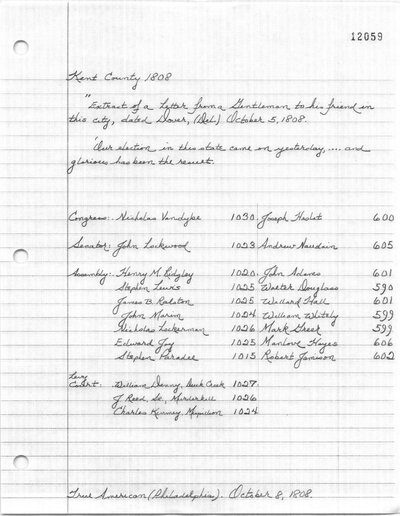 12059
Kent County 1808
"Extract of a Letter from a Gentleman to his friend in
this city, dated Dover, (Del.) October 5, 1808.
'Our election in this state came on yesterday, .... and
glorious has been the result.
Congress: Nicholas Vandyke 1030 Joseph Haslet 600
Senator: John Lockwood 1023 Andrew Naudain 605
Assembly: Henry M. Ridgley 1020 John Adams 601
Stephen Lewis 1025 Walter Douglass 590
James B. Ralston 1025 Willard Hall 601
John Marim 1024 William Whitely 599
Nicholas Lockerman 1026 Mark Greer 599
Edward Joy 1025 Manlove Hayes 606
Stephen Paradee 1015 Robert Jamison 602
Levy
Court: William Denny, Duck Creek 1027
J. Reed, Sr., Murderkill 1026
Charles Kinney, Mispillion 1024
True American (Philadelphia). October 8, 1808.